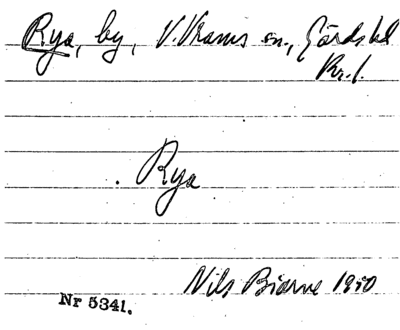 Rya, by, V. Vrams sn., Gärds hd
Kr. l.
Rya
Nils Bjarne 1950
Nr 5341.